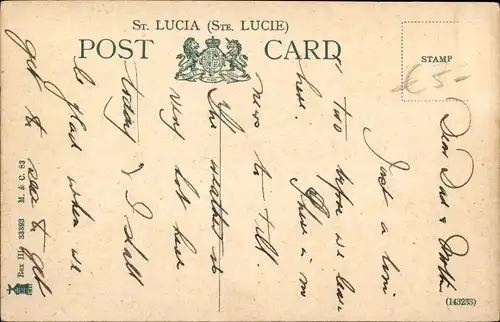 St. Lucia (Ste. Lucie)
POST CARD
STAMP
€5-
Dear Dad & Mother
Just a line
or two before we leave
here. There is no
news to tell.
The weather is
very hot here
today & I shall
be glad when we
get to sea & get
Rex III. 33393 M. & C. 83
(143233)